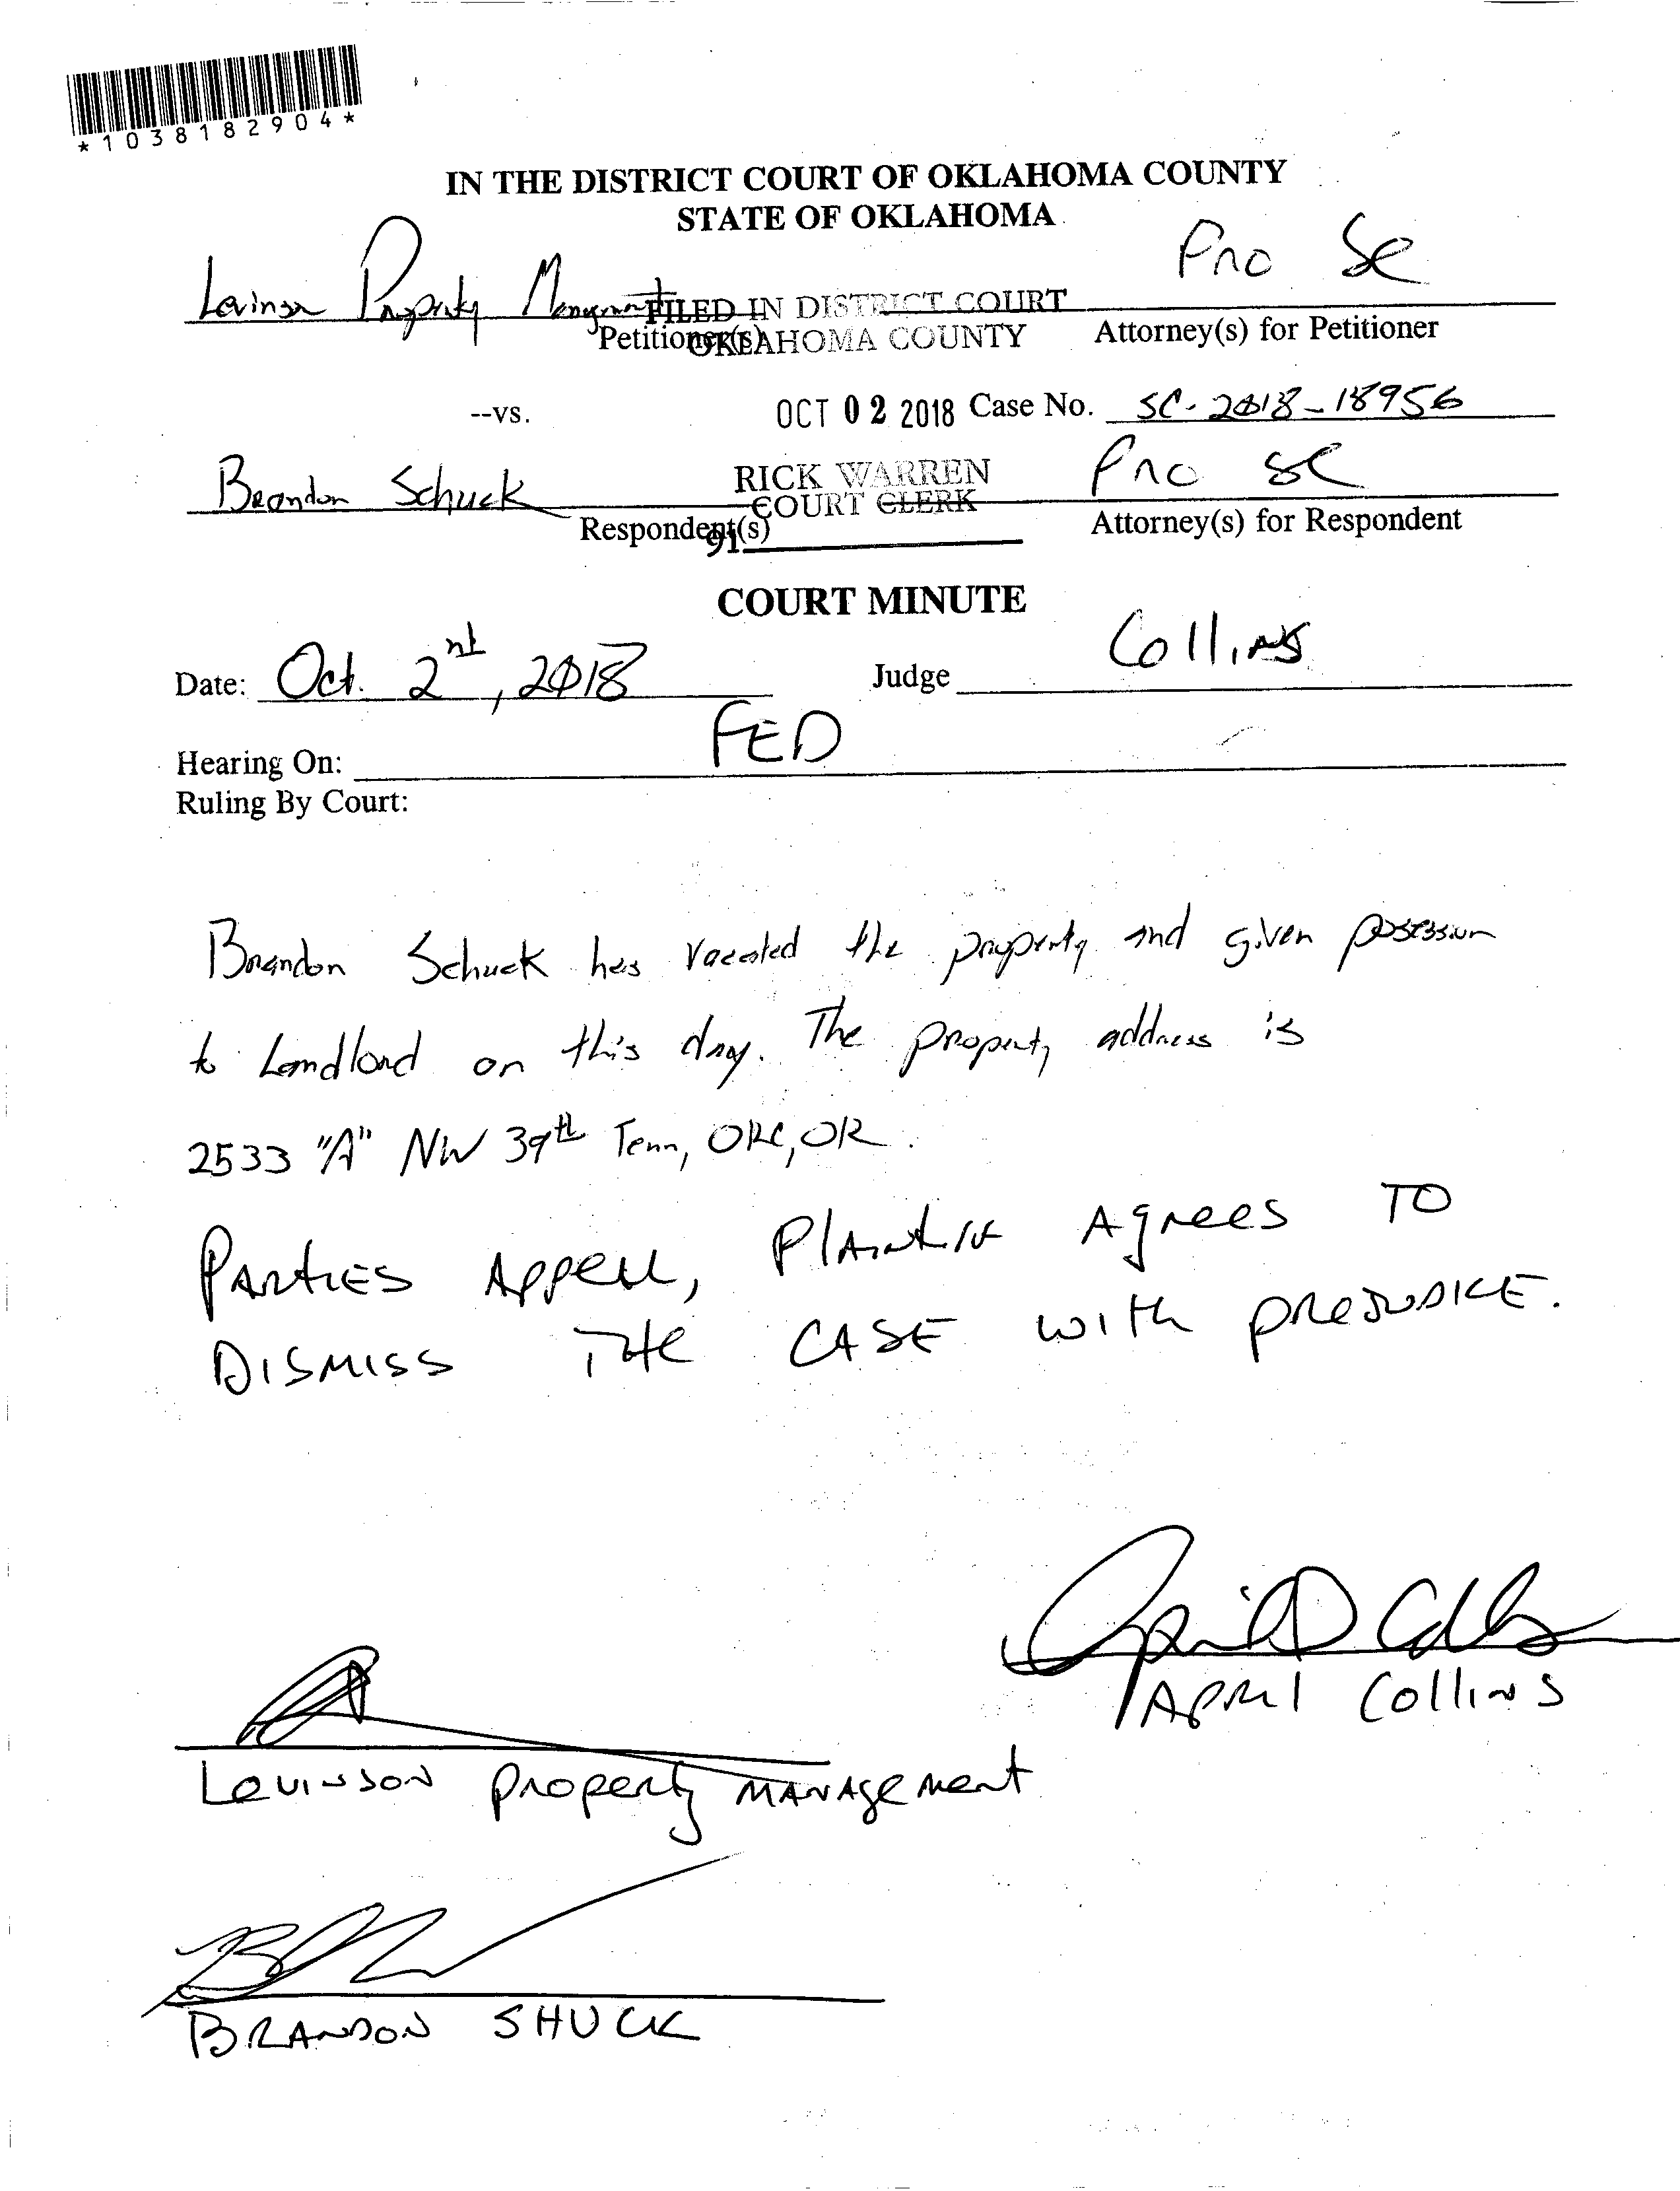 *1038182904*
IN THE DISTRICT COURT OF OKLAHOMA COUNTY
STATE OF OKLAHOMA
Levinson Property Management
Pro Se
FILED IN DISTRICT COURT
OKLAHOMA COUNTY
Petitioner(s)
Attorney(s) for Petitioner
--vs.
OCT 02 2018
Case No. SC-2018-18956
Brandon Schuck
RICK WARREN
COURT CLERK
Pro Se
Respondent(s)
Attorney(s) for Respondent
91
COURT MINUTE
Date: Oct. 2nd, 2018
Judge Collins
Hearing On: FED
Ruling By Court:
Brandon Schuck has vacated the property and given possession
to Landlord on this day. The property address is
2533 "A" NW 39th Terr, OKC, OK.
PARTIES APPEAR, PLAINTIFF AGREES TO
DISMISS THE CASE WITH PREJUDICE.
APRIL COLLINS
LEVINSON PROPERTY MANAGEMENT
BRANDON SHUCK